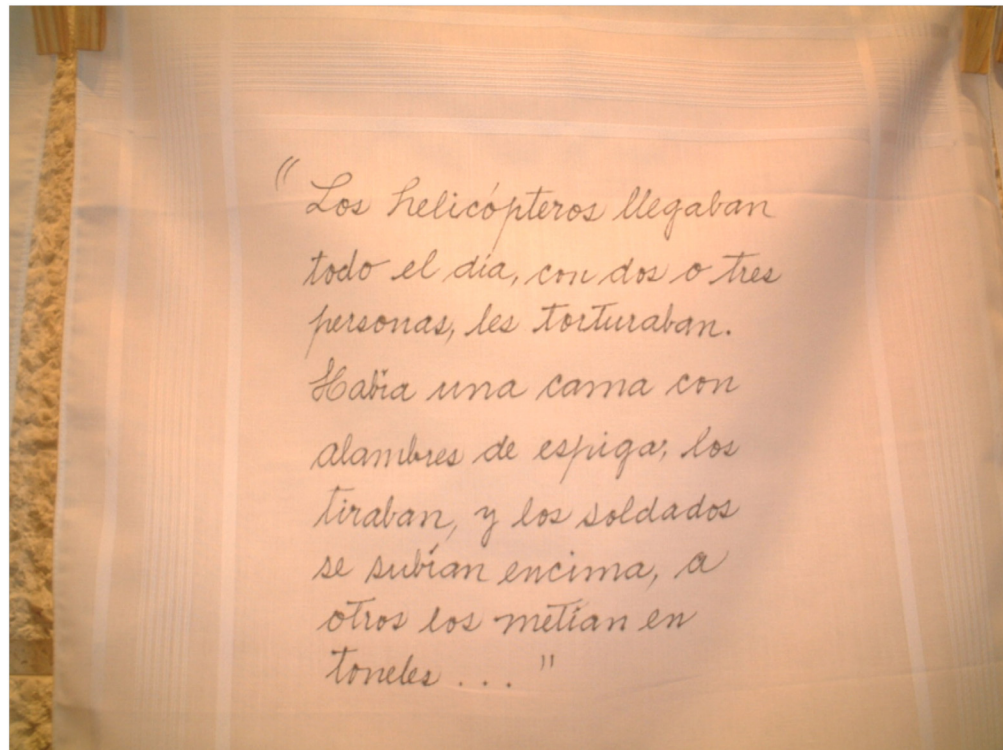 "Los helicópteros llegaban
todo el día, con dos o tres
personas, les torturaban.
Había una cama con
alambres de espiga, los
tiraban, y los soldados
se subían encima, a
otros los metían en
toneles . . . "